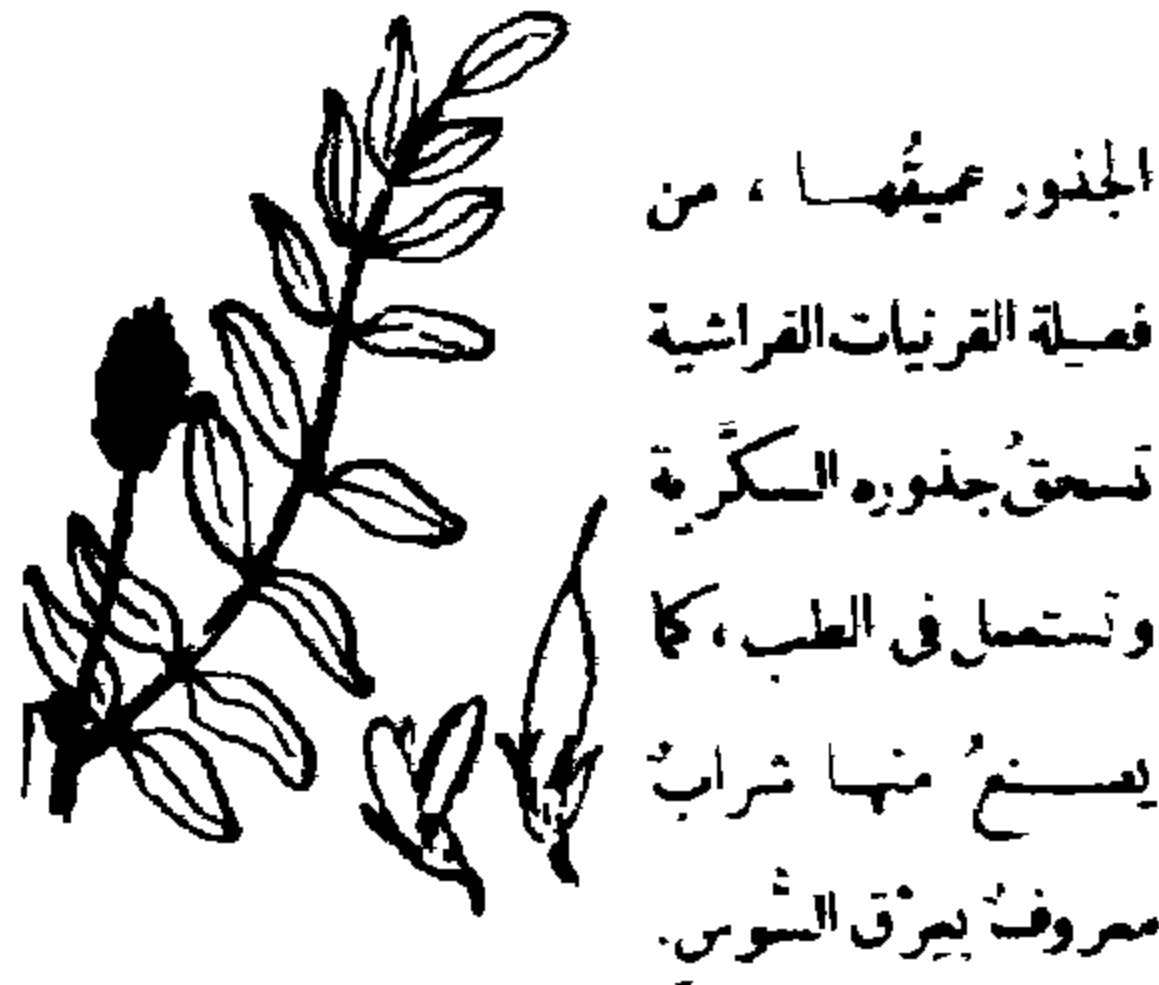 الجذور عميقُها ، من
فصيلة القرنيات الفراشية
تسحقُ جذوره السكَّرية
وتستعمل فى الطب ، كما
يصنعُ منها شرابٌ
معروفٌ بعِرْق السُّوس.